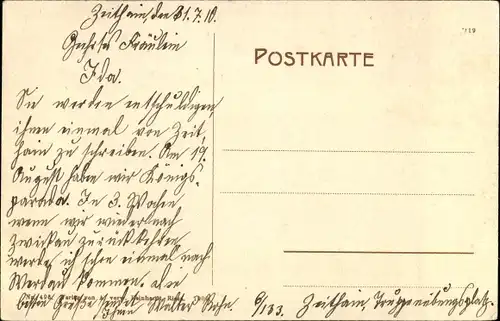 Zeithain, den 31.7.10.
Geehrtes Fräulein
Ida.
Sie werden entschuldigen,
ihnen einmal von Zeit,
hain zu schreiben. Am 19.
August haben wir Königs-
parade. In 3. Wochen
wenn wir wiedernach
Zwickau zurückkehren
werde ich schon einmal nach
Werdau kommen. also
besten Grüße sendet
Ihnen Walter
6/133. Zeithain, Truppenübungsplatz.
POSTKARTE